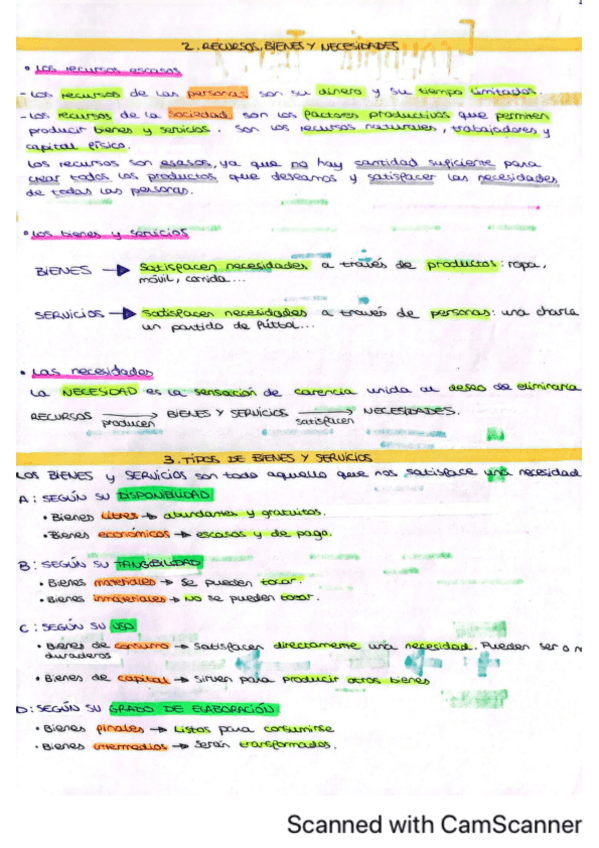 2. RECURSOS, BIENES Y NECESIDADES
• Los recursos escasos
- Los recursos de las personas son su dinero y su tiempo limitados.
- Los recursos de la sociedad son los factores productivos que permiten
producir bienes y servicios. Son los recursos naturales, trabajadores y
capital físico.
Los recursos son escasos, ya que no hay cantidad suficiente para
crear todos los productos que deseamos y satisfacer las necesidades
de todas las personas.
• Los bienes y servicios
BIENES → Satisfacen necesidades a través de productos: ropa,
móvil, comida...
SERVICIOS → Satisfacen necesidades a través de personas: una charla
un partido de fútbol...
• Las necesidades
La NECESIDAD es la sensación de carencia unida al deseo de eliminarla
RECURSOS → BIENES Y SERVICIOS → NECESIDADES.
producen satisfacen
3. TIPOS DE BIENES Y SERVICIOS
LOS BIENES y SERVICIOS son todo aquello que nos satisface una necesidad
A: SEGÚN SU DISPONIBILIDAD
• Bienes libres → abundantes y gratuitos.
• Bienes económicos → escasos y de pago.
B: SEGÚN SU TANGIBILIDAD
• Bienes materiales → Se pueden tocar.
• Bienes inmateriales → No se pueden tocar.
C: SEGÚN SU USO
• Bienes de consumo → Satisfacen directamente una necesidad. Pueden ser o n
duraderos
• Bienes de capital → Sirven para producir otros bienes
D: SEGÚN SU GRADO DE ELABORACIÓN
• Bienes finales → Listos para consumirse
• Bienes intermedios → Serán transformados.
Scanned with CamScanner